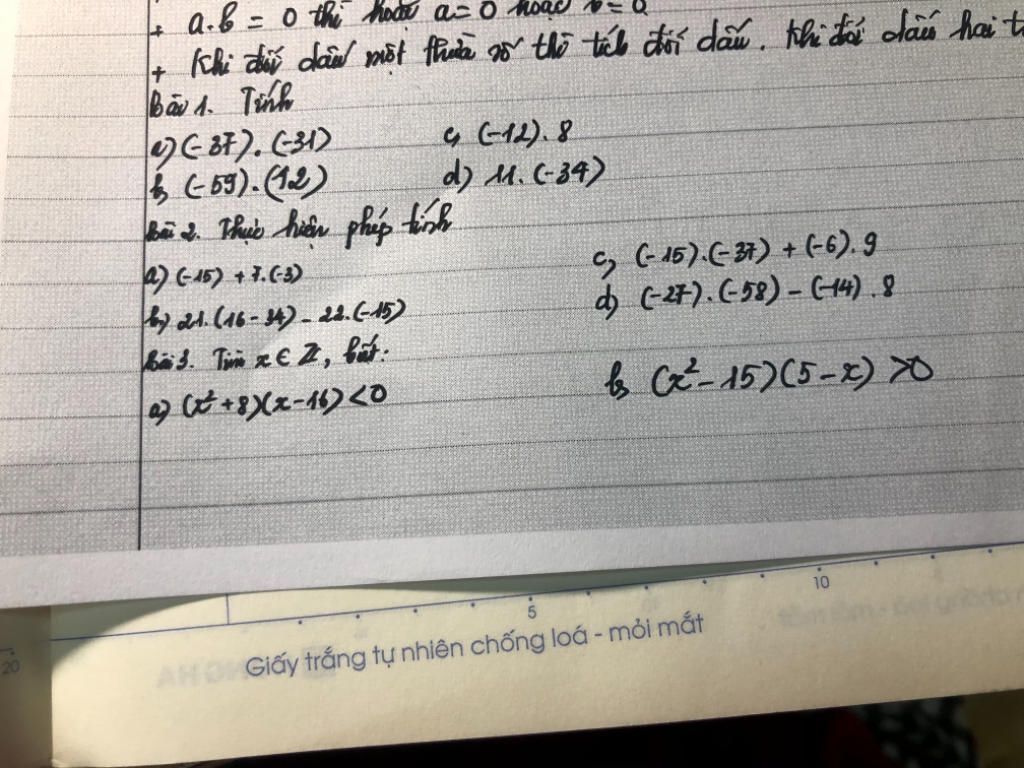 + a.b = 0 thì hoặc a = 0 hoặc b = 0
+ Khi đổi dấu một thừa số thì tích đổi dấu. Khi đổi dấu hai
Bài 1. Tính
a) (-37).(-31)
c, (-12).8
b, (-59).(12)
d) 11.(-34)
Bài 2. Thực hiện phép tính
a) (-15) + 7.(-3)
c, (-15).(-37) + (-6).9
b, 21.(16-34) - 22.(-15)
d) (-27).(-58) - (-14).8
Bài 3. Tìm x ∈ Z, biết:
a) (x² + 8)(x - 16) < 0
b, (x² - 15)(5 - x) > 0
5
10
20
Giấy trắng tự nhiên chống loá - mỏi mắt